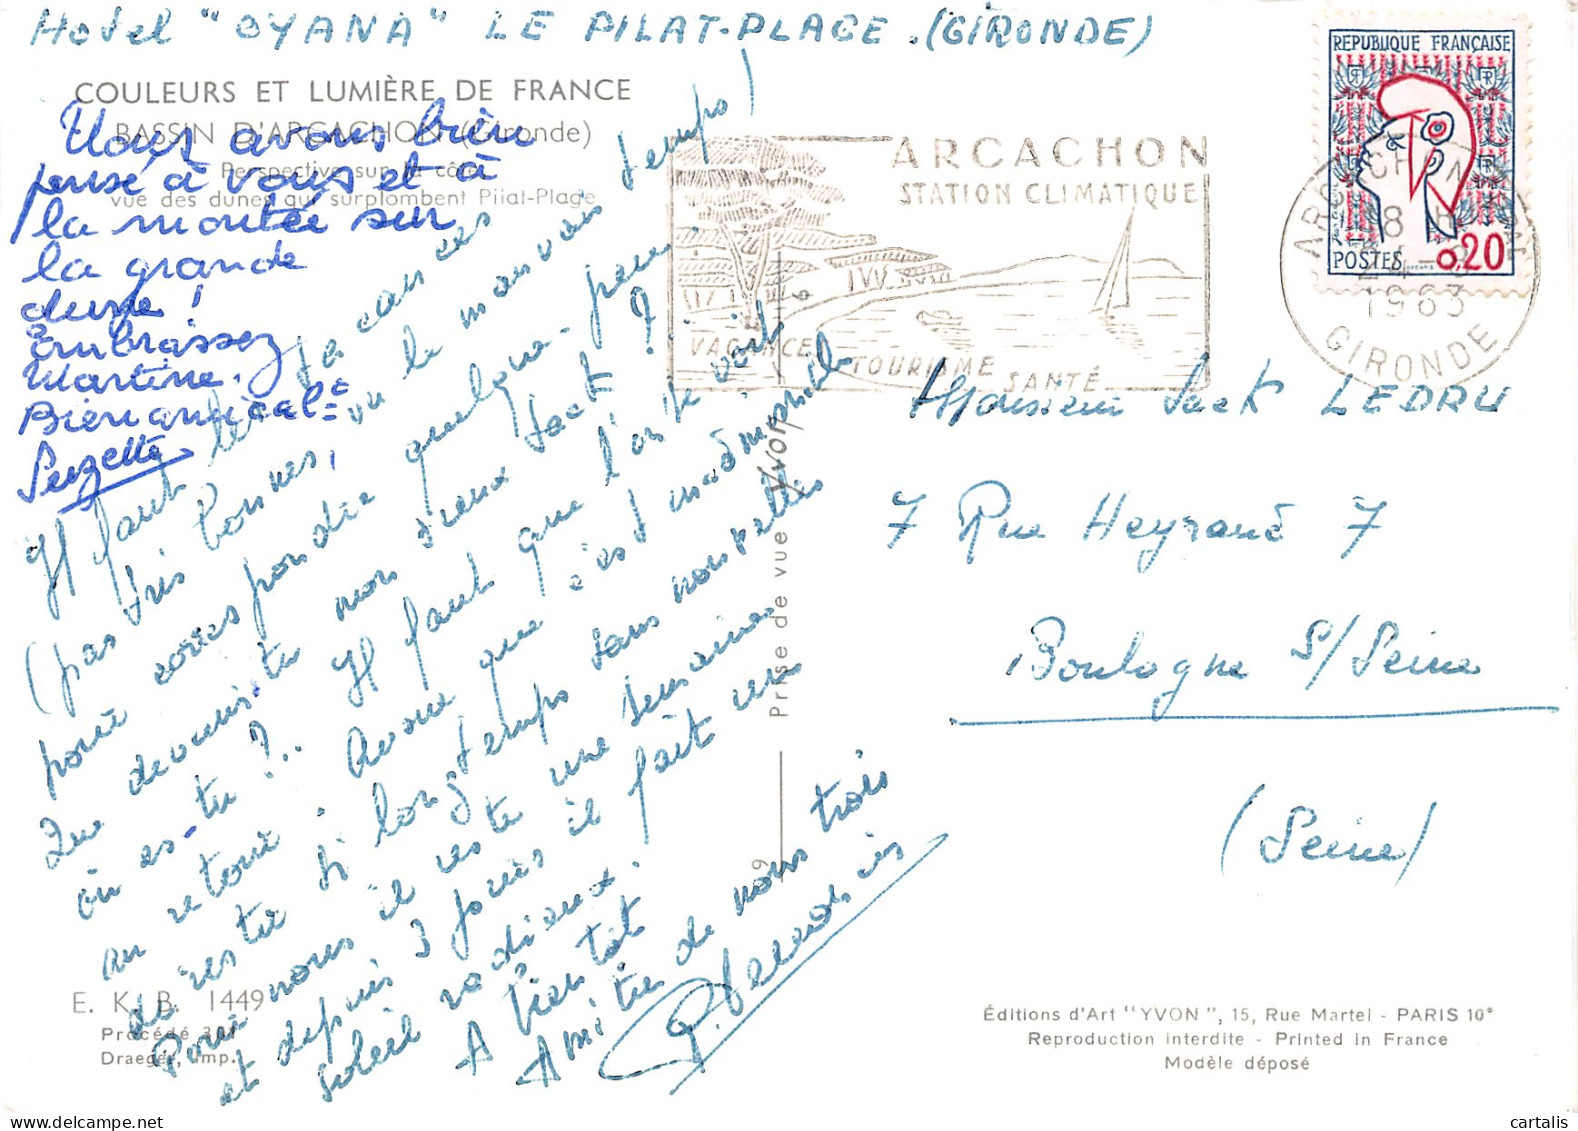 Hotel "OYANA" LE PILAT-PLAGE. (GIRONDE)
COULEURS ET LUMIÈRE DE FRANCE
BASSIN D'ARCACHON (Gironde)
Perspective sur la côte
vue des dunes qui surplombent Pilat-Plage
Nous avons bien
pensé à vous et à
la montée sur
la grande
dune !
Embrassez
Martine.
Bien amicalt
Suzette
Il faut les vacances
(pas très bonnes, vu le mauvais temps)
pour correspondre quelque peu.
Que deviens-tu mon vieux Jack ?
où es-tu ?.. Il faut que l'on se voit
au retour ; Avoue que c'est inadmissible
de rester si longtemps sans nouvelles
Pour nous il reste une semaine
et depuis 3 jours il fait un
soleil radieux.
A bientôt
Amitiés de nous trois
REPUBLIQUE FRANÇAISE
POSTES
0,20
ARCACHON
STATION CLIMATIQUE
VACANCES
TOURISME
SANTÉ
ARCACHON
18 H
1963
GIRONDE
Monsieur Jack LEDRU
7 Rue Heyrault 7
Boulogne S/Seine
(Seine)
Prise de vue Yvon
9
E. K. B. 1449
Procédé 301
Draeger, imp.
Éditions d'Art "YVON", 15, Rue Martel - PARIS 10e
Reproduction interdite - Printed in France
Modèle déposé
cartalis.com